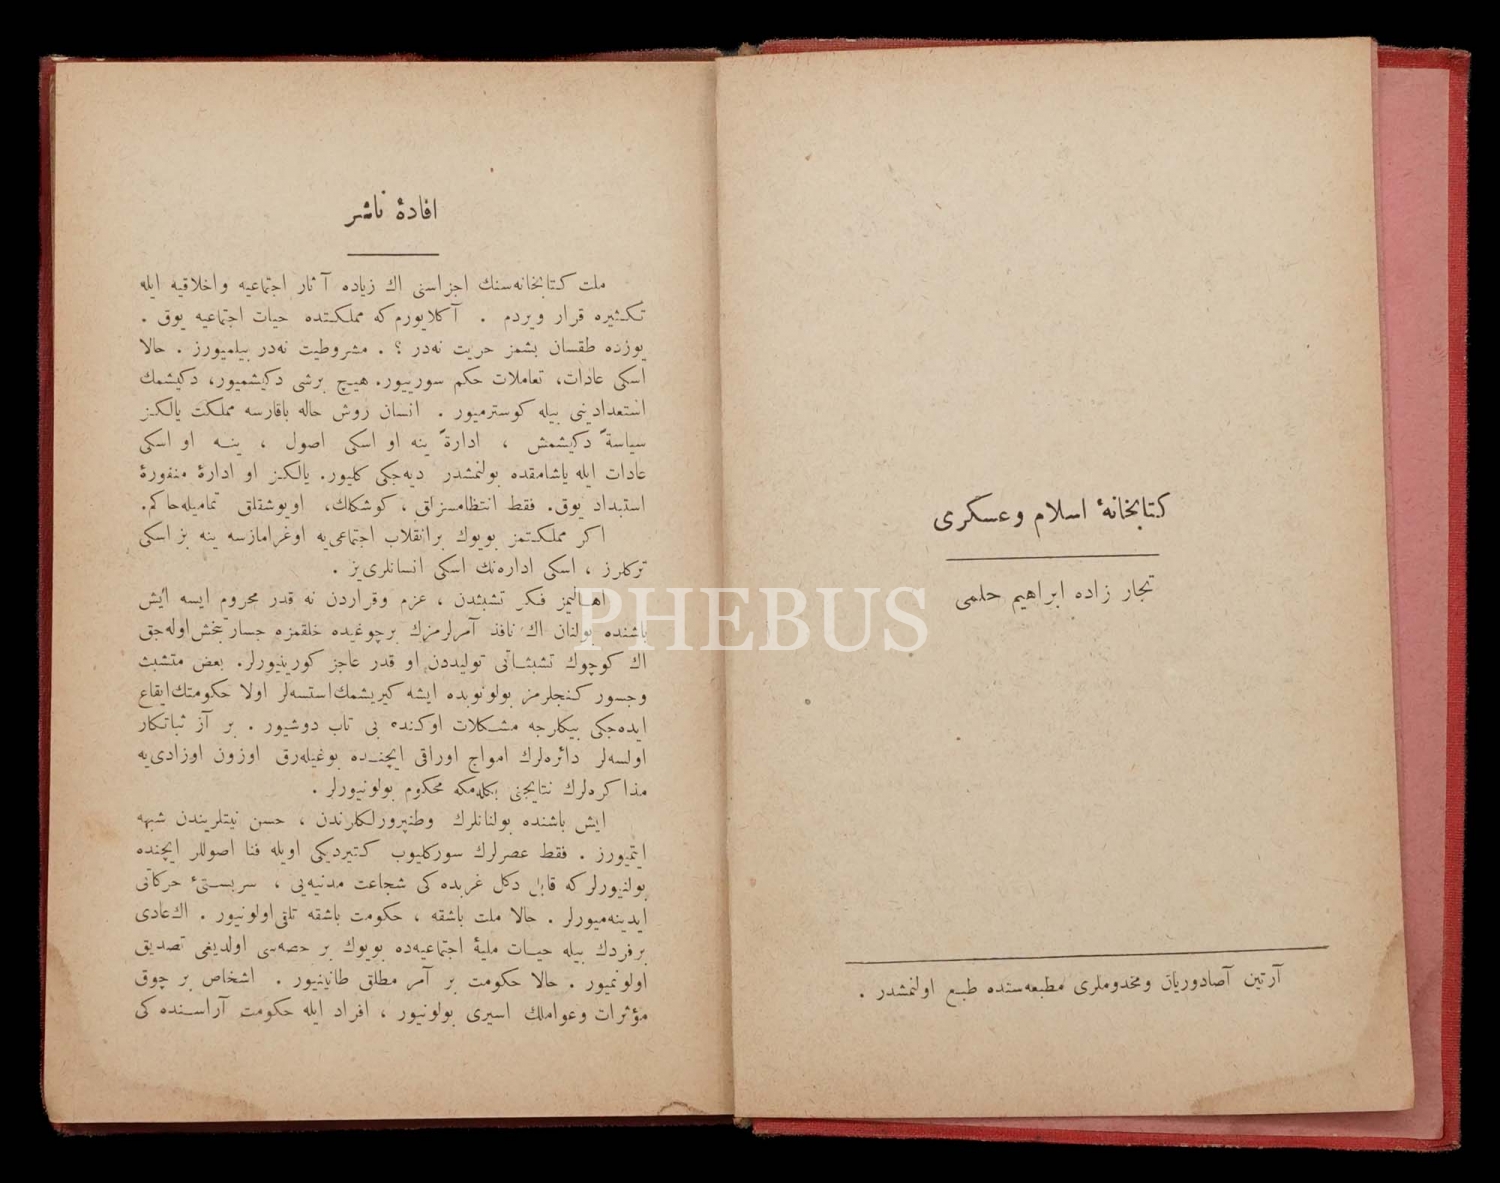 كتابخانهٔ اسلام وعسكرى
تجار زاده ابراهيم حلمى
آرتين آصادوريان ومخدوملرى مطبعه‌سنده طبع اولنمشدر .
افادهٔ ناشر
ملت كتابخانه‌سنك اجزاسنى اك زياده آثار اجتماعيه واخلاقيه ايله
تكثيره قرار ويردم . آكلايورم‌كه مملكتده حيات اجتماعيه يوق .
يوزده طقسان بشمز حريت نه‌در ؟ . مشروطيت نه‌در بيلميورز . حالا
اسكى عادات، تعاملات حكم سورييور. هيچ برشى دكيشميور، دكيشمك
استعدادينى بيله كوسترميور . انسان روش حاله باقارسه مملكت يالكز
سياسةً دكيشمش ، ادارةً ينه او اسكى اصول ، ينه او اسكى
عادات ايله ياشامقده بولنمشدر ديه‌جكى كليور. يالكز او ادارهٔ منفورهٔ
استبداد يوق. فقط انتظامسزلق ، كوشكلك، اويوشقلق تماميله‌حاكم.
اكر مملكتمز بويوك برانقلاب اجتماعى‌يه اوغرامازسه ينه بز اسكى
تركلرز ، اسكى اداره‌نك اسكى انسانلرى‌يز .
اهاليمز فكر تشبثدن ، عزم وقراردن نه قدر محروم ايسه ايش
باشنده بولنان اك نافذ آمرلرمزك برچوغيده خلقمزه جسارتبخش‌اوله‌جق
اك كوچوك تشبثاتى توليددن او قدر عاجز كورينيورلر. بعض متشبث
وجسور كنجلرمز بولونوبده ايشه كيريشمك‌استسه‌لر اولا حكومتك‌ايقاع
ايده‌جكى بيكلرجه مشكلات اوكنده بى تاب دوشيور . بر آز ثباتكار
اولسه‌لر دائره‌لرك امواج اوراقى ايچنده بوغيله‌رق اوزون اوزادى‌يه
مذاكره‌لرك نتايجنى بكله‌مكه محكوم بولونيورلر .
ايش باشنده بولنانلرك وطنپرورلكلرندن ، حسن نيتلريندن شبهه
ايتميورز . فقط عصرلرك سوركليوب كتيرديكى اويله فنا اصوللر ايچنده
بولنيورلركه قابل دكل غربده كى شجاعت مدنيه‌يى ، سربستىٔ حركاتى
ايدينه‌ميورلر . حالا ملت باشقه ، حكومت باشقه تلقى‌اولونيور . اك‌عادى
برفردك بيله حيات مليهٔ اجتماعيه‌ده بويوك بر حصه‌سى اولديغى تصديق
اولونميور . حالا حكومت بر آمر مطلق طانينيور . اشخاص بر چوق
مؤثرات وعواملك اسيرى بولونيور ، افراد ايله حكومت آراسنده كى
PHEBUS